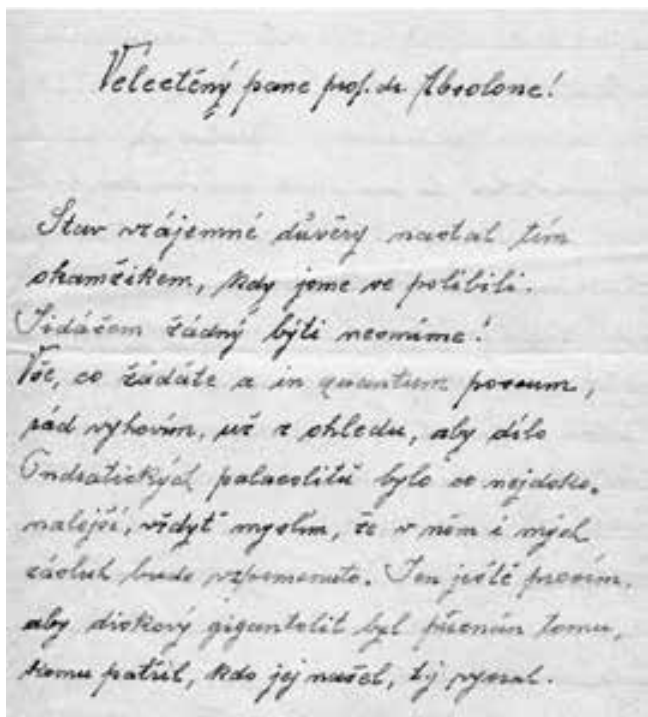 Velectěný pane prof. dr. Absolone!
Stav vzájemné důvěry nastal tím
okamžikem, kdy jsme se políbili.
Jidášem žádný býti nesmíme!
Vše, co žádáte a in quantum possum,
rád vyhovím, už z ohledu, aby dílo
Ondratických palaeolitů bylo co nejdoko-
nalejší, vždyť myslím, že v něm i mých
zásluh bude vzpomenuto. Jen ještě prosím,
aby diskový gigantolit byl přiznán tomu,
komu patřil, kdo jej našel, tj